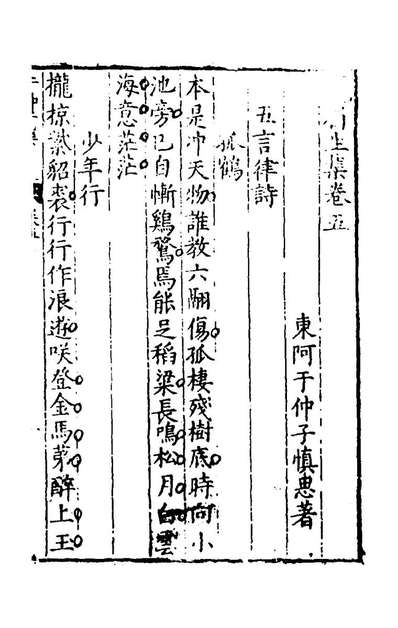 生集卷五
東阿于仲子慎思著
五言律詩
孤鶴
本是冲天物誰教六翮傷孤棲殘樹底時向小
池旁已自慚鷄鶩焉能足稻粱長鳴松月白雲
海意茫茫
少年行
攏掠紫貂裘行行作浪遊咲登金馬第醉上玉